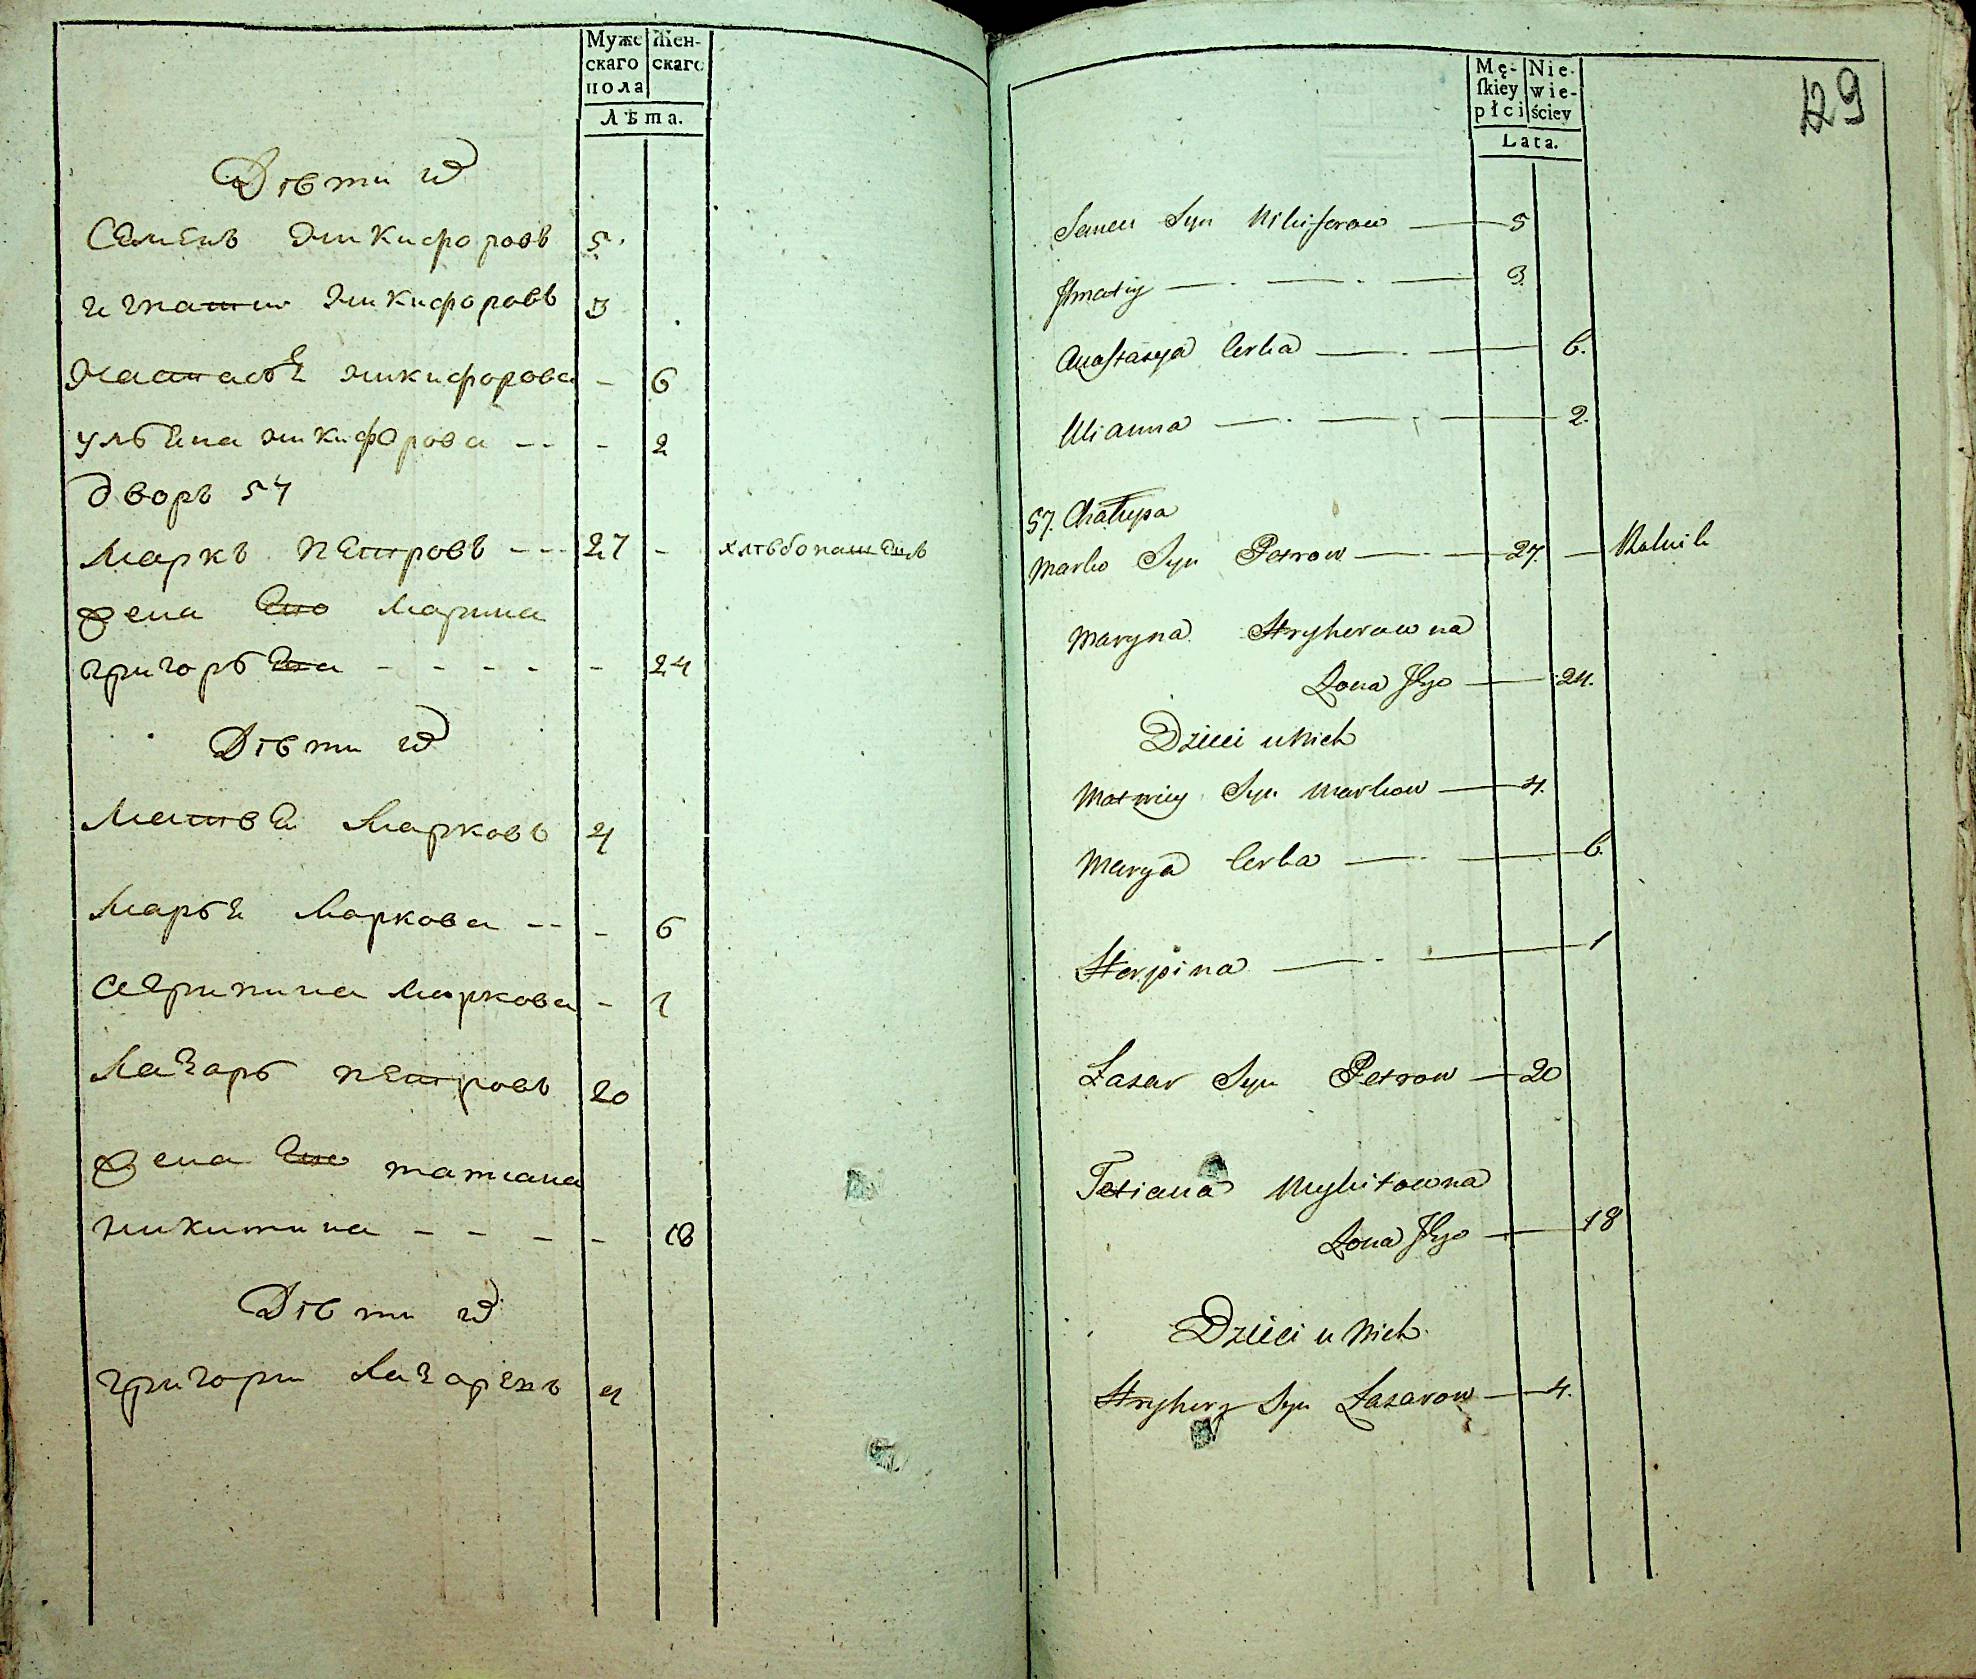 Муже Жен-
скаго скаго
пола
Лѣта.
Дѣти Ѿ
Семенъ Никифоровъ 5
Игнатий Никифоровъ 3
Настасья Никифорова - 6
Ульяна Никифорова - - - 2
Дворъ 57
Маркъ Петровъ - - - 27 - хлѣбопашецъ
Жена Его Марина
Григорьева - - - - - - 24
Дѣти Ѿ
Матвей Марковъ 4
Марья Маркова - - - 6
Агрипина Маркова - 1
Лазарь Петровъ 20
Жена Его Татиана
Никитина - - - - - 18
Дѣти Ѿ
Григори Лазаревъ 4
Mę- Nie-
ſkiey wie-
płci ściey
Lata.
129
Semen Syn Nikiforow 5
Hnatiy 3
Anastazya Corka 6.
Ulianna 2.
57. Chałupa
Marko Syn Petrow 27. Rolnik
Maryna Hryhorowna
Żona Jego 24.
Dzieci u Nich
Matwiey Syn Markow 4.
Marya Corka 6.
Horpina 1
Łazar Syn Petrow 20
Tetiana Mykitowna
Żona Jego 18
Dzieci u Nich
Hryhory Syn Łazarow 4.